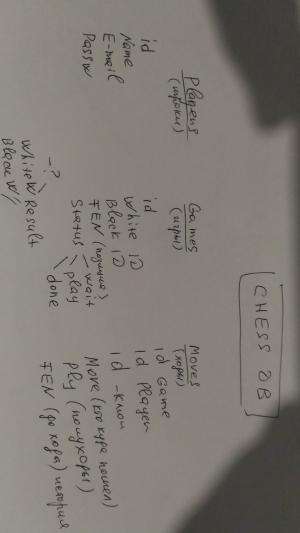 CHESS DB
Players
(игроки)
id
Name
E-mail
Passw
Games
(игры)
id
White ID
Black ID
FEN (позиция)
Status - wait
play
done
Result
- ?
White W
Black W
Moves
(ходы)
id Game
id Player
id - ключ
Move (кто куда пошел)
ply (полуходы)
FEN (до хода) история